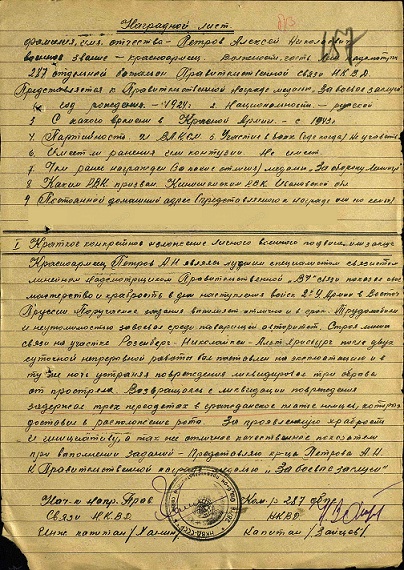 157
Наградной лист.
Фамилия, имя, отчество - Петров Алексей Николаевич
военное звание - красноармеец. Должность, часть
287 отдельной Правительственной связи НКВД.
Представляется к Правительственной Награде медаль "За боевые заслуги"
год рождения - 1924 г. Национальность - русский
3 С какого времени в Красной Армии. - с 1943.
4. Партийность чл. ВЛКСМ. 5 Участие в боях (где когда) Не участв.
6. Имеет ли ранения или контузии Не имеет.
7. Чем ранее награжден (за какие отличия) медаль "За оборону
8. Каким РВК призван Кинешемским РВК Ивановской обл.
9 Постоянный домашний адрес (представляемого к награде
I. Краткое конкретное изложение личного боевого подвига или заслуг
Красноармеец Петров А.Н. является лучшим специалистом связистом
линейным надсмотрщиком Правительственной "ВЧ" связи показал свое
мастерство и храбрость в дни наступления войск 2-й Армии в Восточ.
Пруссии. Порученные задания выполняет отлично и в срок. Трудолюбием
и неутомимостью завоевал среди товарищей авторитет. Строя линию
связи на участке Розенберг - Николайкен - после двух
суточной непрерывной работы был поставлен на эксплоатацию и в
ту же ночь устраняя повреждения ликвидировал три обрыва
от прострела. Возвращаясь с ликвидации повреждения
задержал трех переодетых в гражданское платье немцев, которых
доставил в расположение роты. За проявленную храбрость
и инициативу, а так же отличные качественные показатели
при выполнении заданий - Представляю кр-ца Петрова А.Н.
к Правительственной награде медалью "За боевые заслуги"
Нач-к Напр. Прав. Ком-р 287
Связи НКВД НКВД
Инж. капитан Капитан /Зайцев/